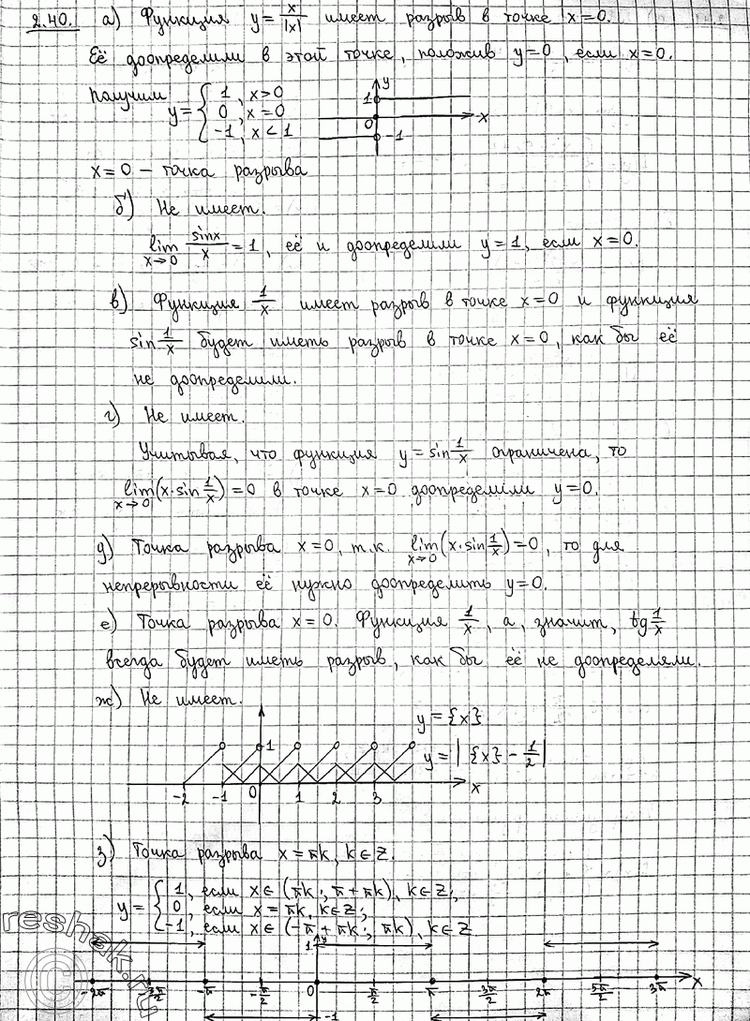 2.40. а) Функция y = x/|x| имеет разрыв в точке x=0.
Её доопределили в этой точке, положив y=0, если x=0.
Получим y = { 1, x>0
0, x=0
-1, x<1
y
1
0
x
-1
x=0 – точка разрыва
б) Не имеет.
lim x→0 sinx/x = 1, её и доопределили y=1, если x=0.
в) Функция 1/x имеет разрыв в точке x=0 и функция
sin 1/x будет иметь разрыв в точке x=0, как бы её
не доопределили.
г) Не имеет.
Учитывая, что функция y = sin 1/x ограничена, то
lim x→0 (x·sin 1/x) = 0 в точке x=0 доопределили y=0.
д) Точка разрыва x=0, т.к. lim x→0 (x·sin 1/x) = 0, то для
непрерывности её нужно доопределить y=0.
е) Точка разрыва x=0. Функция 1/x, а, значит, tg 1/x
всегда будет иметь разрыв, как бы её не доопределяли.
ж) Не имеет.
y = {x}
1
y = |{x} - 1/2|
-2 -1 0 1 2 3 x
з) Точка разрыва x = πk, k∈Z.
y = { 1, если x∈(πk; π+πk), k∈Z;
0, если x = πk, k∈Z;
-1, если x∈(-π+πk; πk), k∈Z
1 y
-2π -3π/2 -π -π/2 0 π/2 π 3π/2 2π 5π/2 3π x
-1
reshak.ru
©